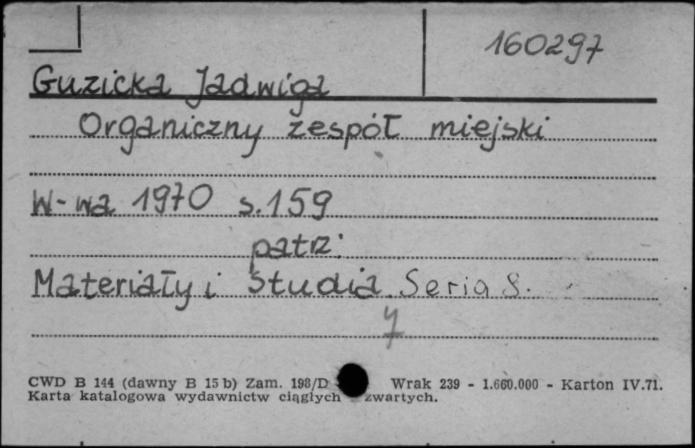 160297
Guzicka Jadwiga
Organiczny zespół miejski
W-wa 1970 s.159
patrz:
Materiały i Studia. Seria 8.
7
CWD B 144 (dawny B 15 b) Zam. 198/D Wrak 239 - 1.660.000 - Karton IV.71.
Karta katalogowa wydawnictw ciągłych zwartych.